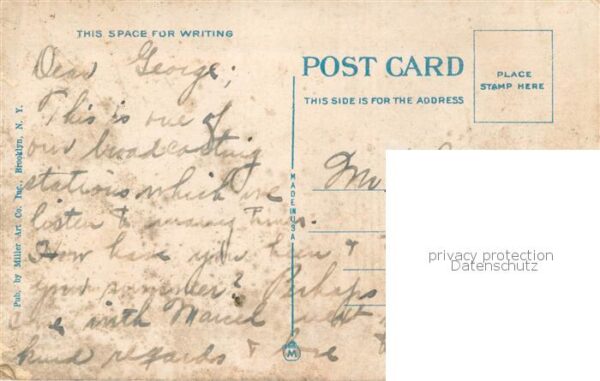 THIS SPACE FOR WRITING
Dear George;
This is one of
our broadcasting
stations which we
listen to many times.
How have you been &
your summer? Perhaps
with Marcel
kind regards & love
Pub. by Miller Art Co. Inc., Brooklyn, N. Y.
MADE IN USA
M
POST CARD
THIS SIDE IS FOR THE ADDRESS
PLACE
STAMP HERE
privacy protection
Datenschutz